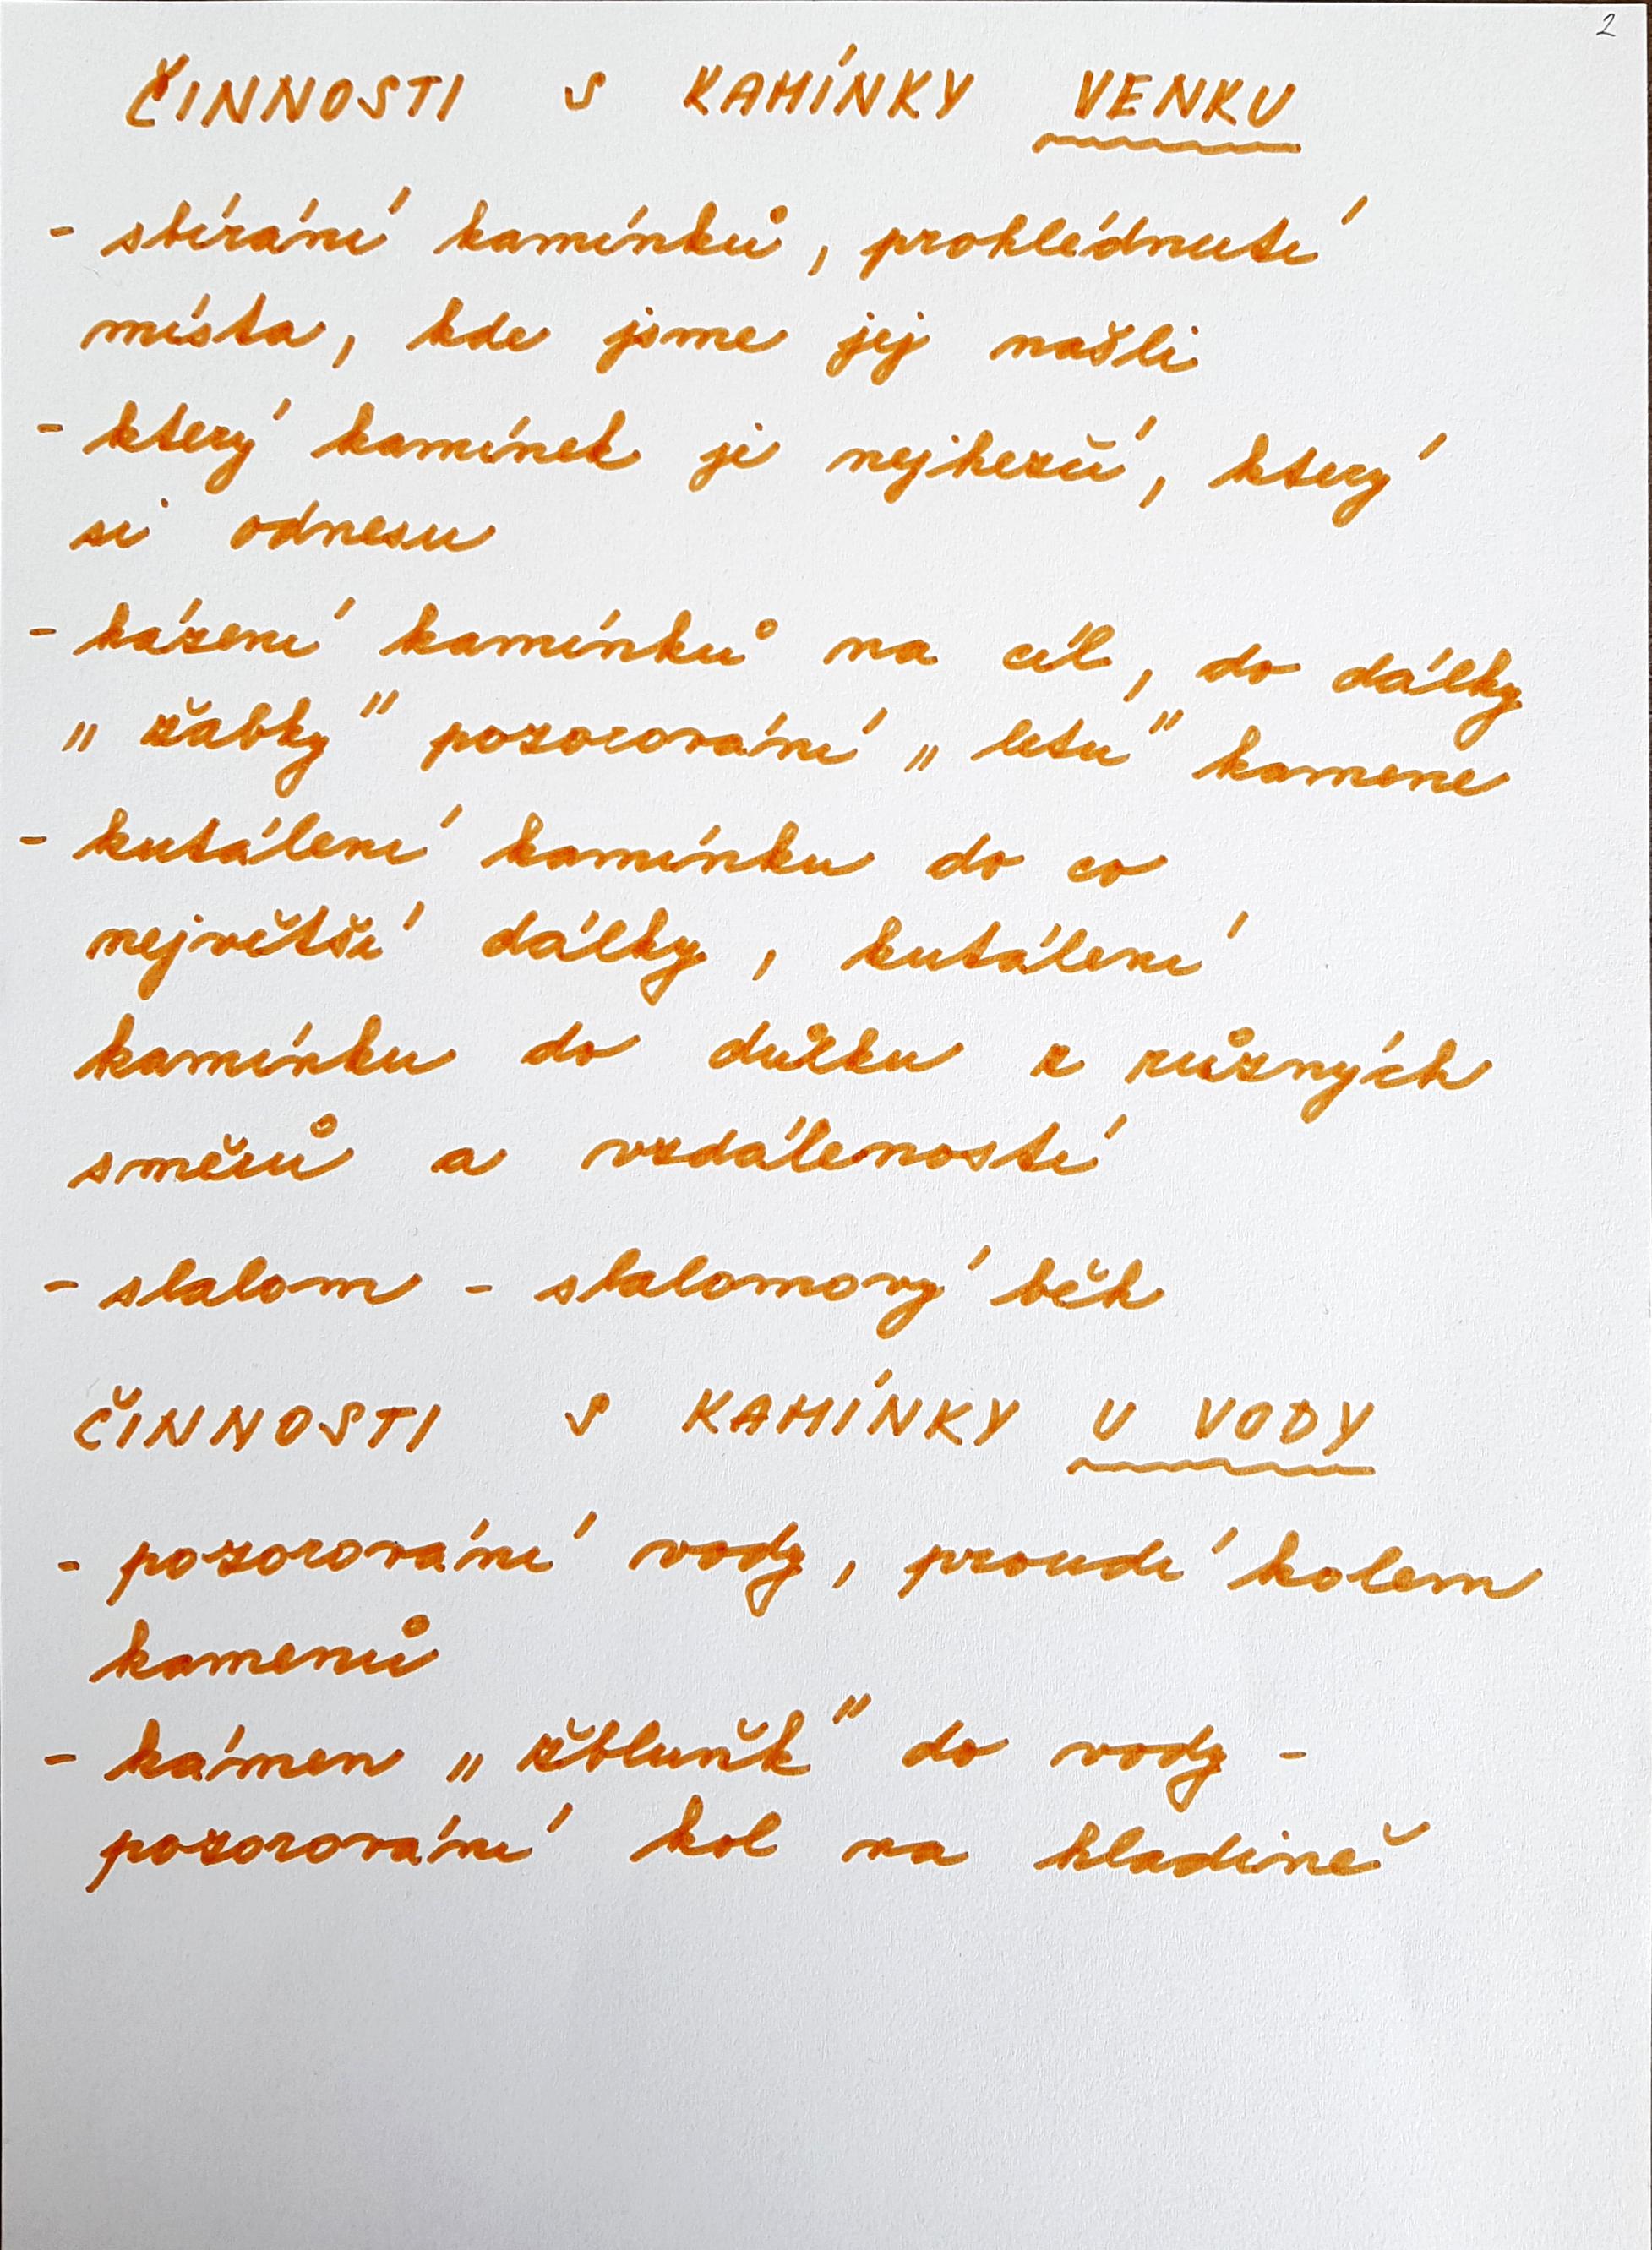 2
ČINNOSTI S KAMÍNKY VENKU
- sbírání kamínků, prohlédnutí
místa, kde jsme jej našli
- který kamínek je nejhezčí, který
si odnesu
- házení kamínků na cíl, do dálky
„žabky" pozorování „letu" kamene
- kutálení kamínku do co
největší dálky, kutálení
kamínku do důlku z různých
směrů a vzdáleností
- slalom - slalomový běh
ČINNOSTI S KAMÍNKY U VODY
- pozorování vody, proudí kolem
kamenů
- kámen „žbluňk" do vody -
pozorování kol na hladině